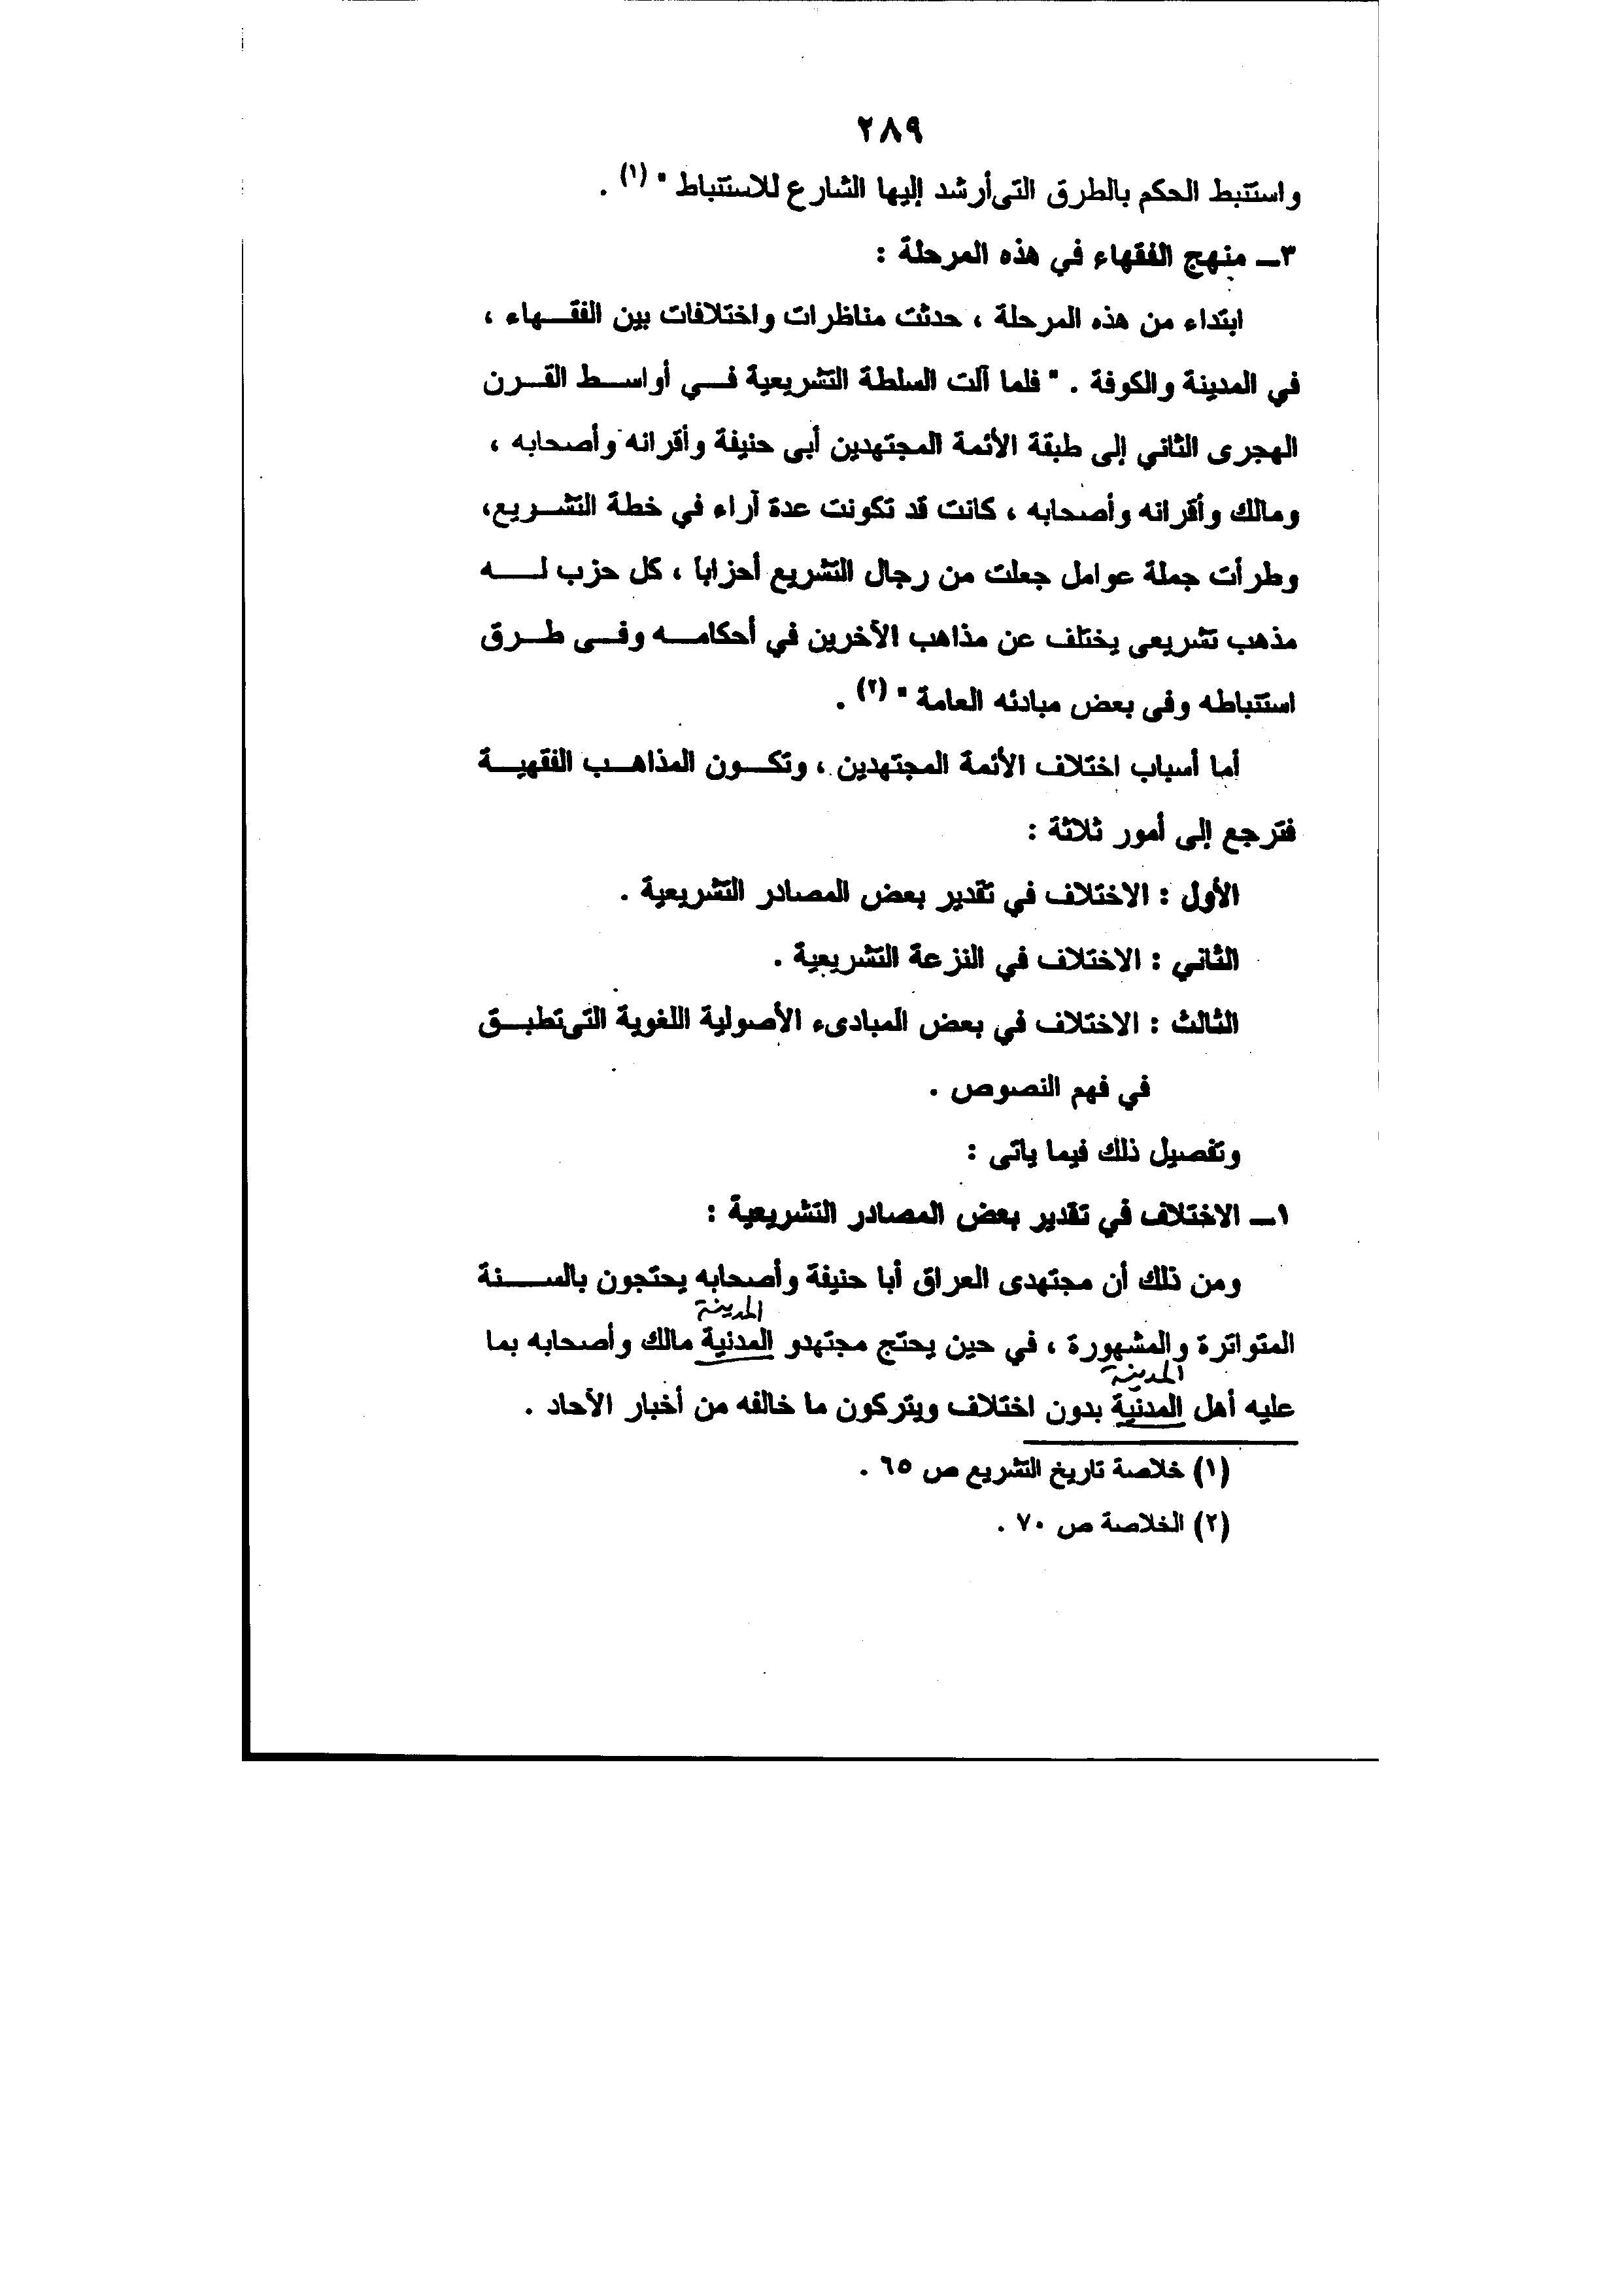 ٢٨٩
واستنبط الحكم بالطرق التى أرشد إليها الشارع للاستنباط " (١) .
٣ــ منهج الفقهاء في هذه المرحلة :
ابتداء من هذه المرحلة ، حدثت مناظرات واختلافات بين الفقـــهاء ،
في المدينة والكوفة . " فلما آلت السلطة التشريعية فـــي أواســط القــرن
الهجرى الثاني إلى طبقة الأئمة المجتهدين أبى حنيفة وأقرانه وأصحابه ،
ومالك وأقرانه وأصحابه ، كانت قد تكونت عدة آراء في خطة التشــريع،
وطرأت جملة عوامل جعلت من رجال التشريع أحزابا ، كل حزب لـــه
مذهب تشريعى يختلف عن مذاهب الآخرين في أحكامــه وفــى طــرق
استنباطه وفى بعض مبادئه العامة " (٢) .
أما أسباب اختلاف الأئمة المجتهدين ، وتكــون المذاهــب الفقهيــة
فترجع إلى أمور ثلاثة :
الأول : الاختلاف في تقدير بعض المصادر التشريعية .
الثاني : الاختلاف في النزعة التشريعية .
الثالث : الاختلاف في بعض المبادىء الأصولية اللغوية التى تطبــق
في فهم النصوص .
وتفصيل ذلك فيما ياتى :
١ــ الاختلاف في تقدير بعض المصادر التشريعية :
ومن ذلك أن مجتهدى العراق أبا حنيفة وأصحابه يحتجون بالســـنة
المدينة
المتواترة والمشهورة ، في حين يحتج مجتهدو المدنية مالك وأصحابه بما
المدينة
عليه أهل المدنية بدون اختلاف ويتركون ما خالفه من أخبار الآحاد .
(١) خلاصة تاريخ التشريع ص ٦٥ .
(٢) الخلاصة ص ٧٠ .